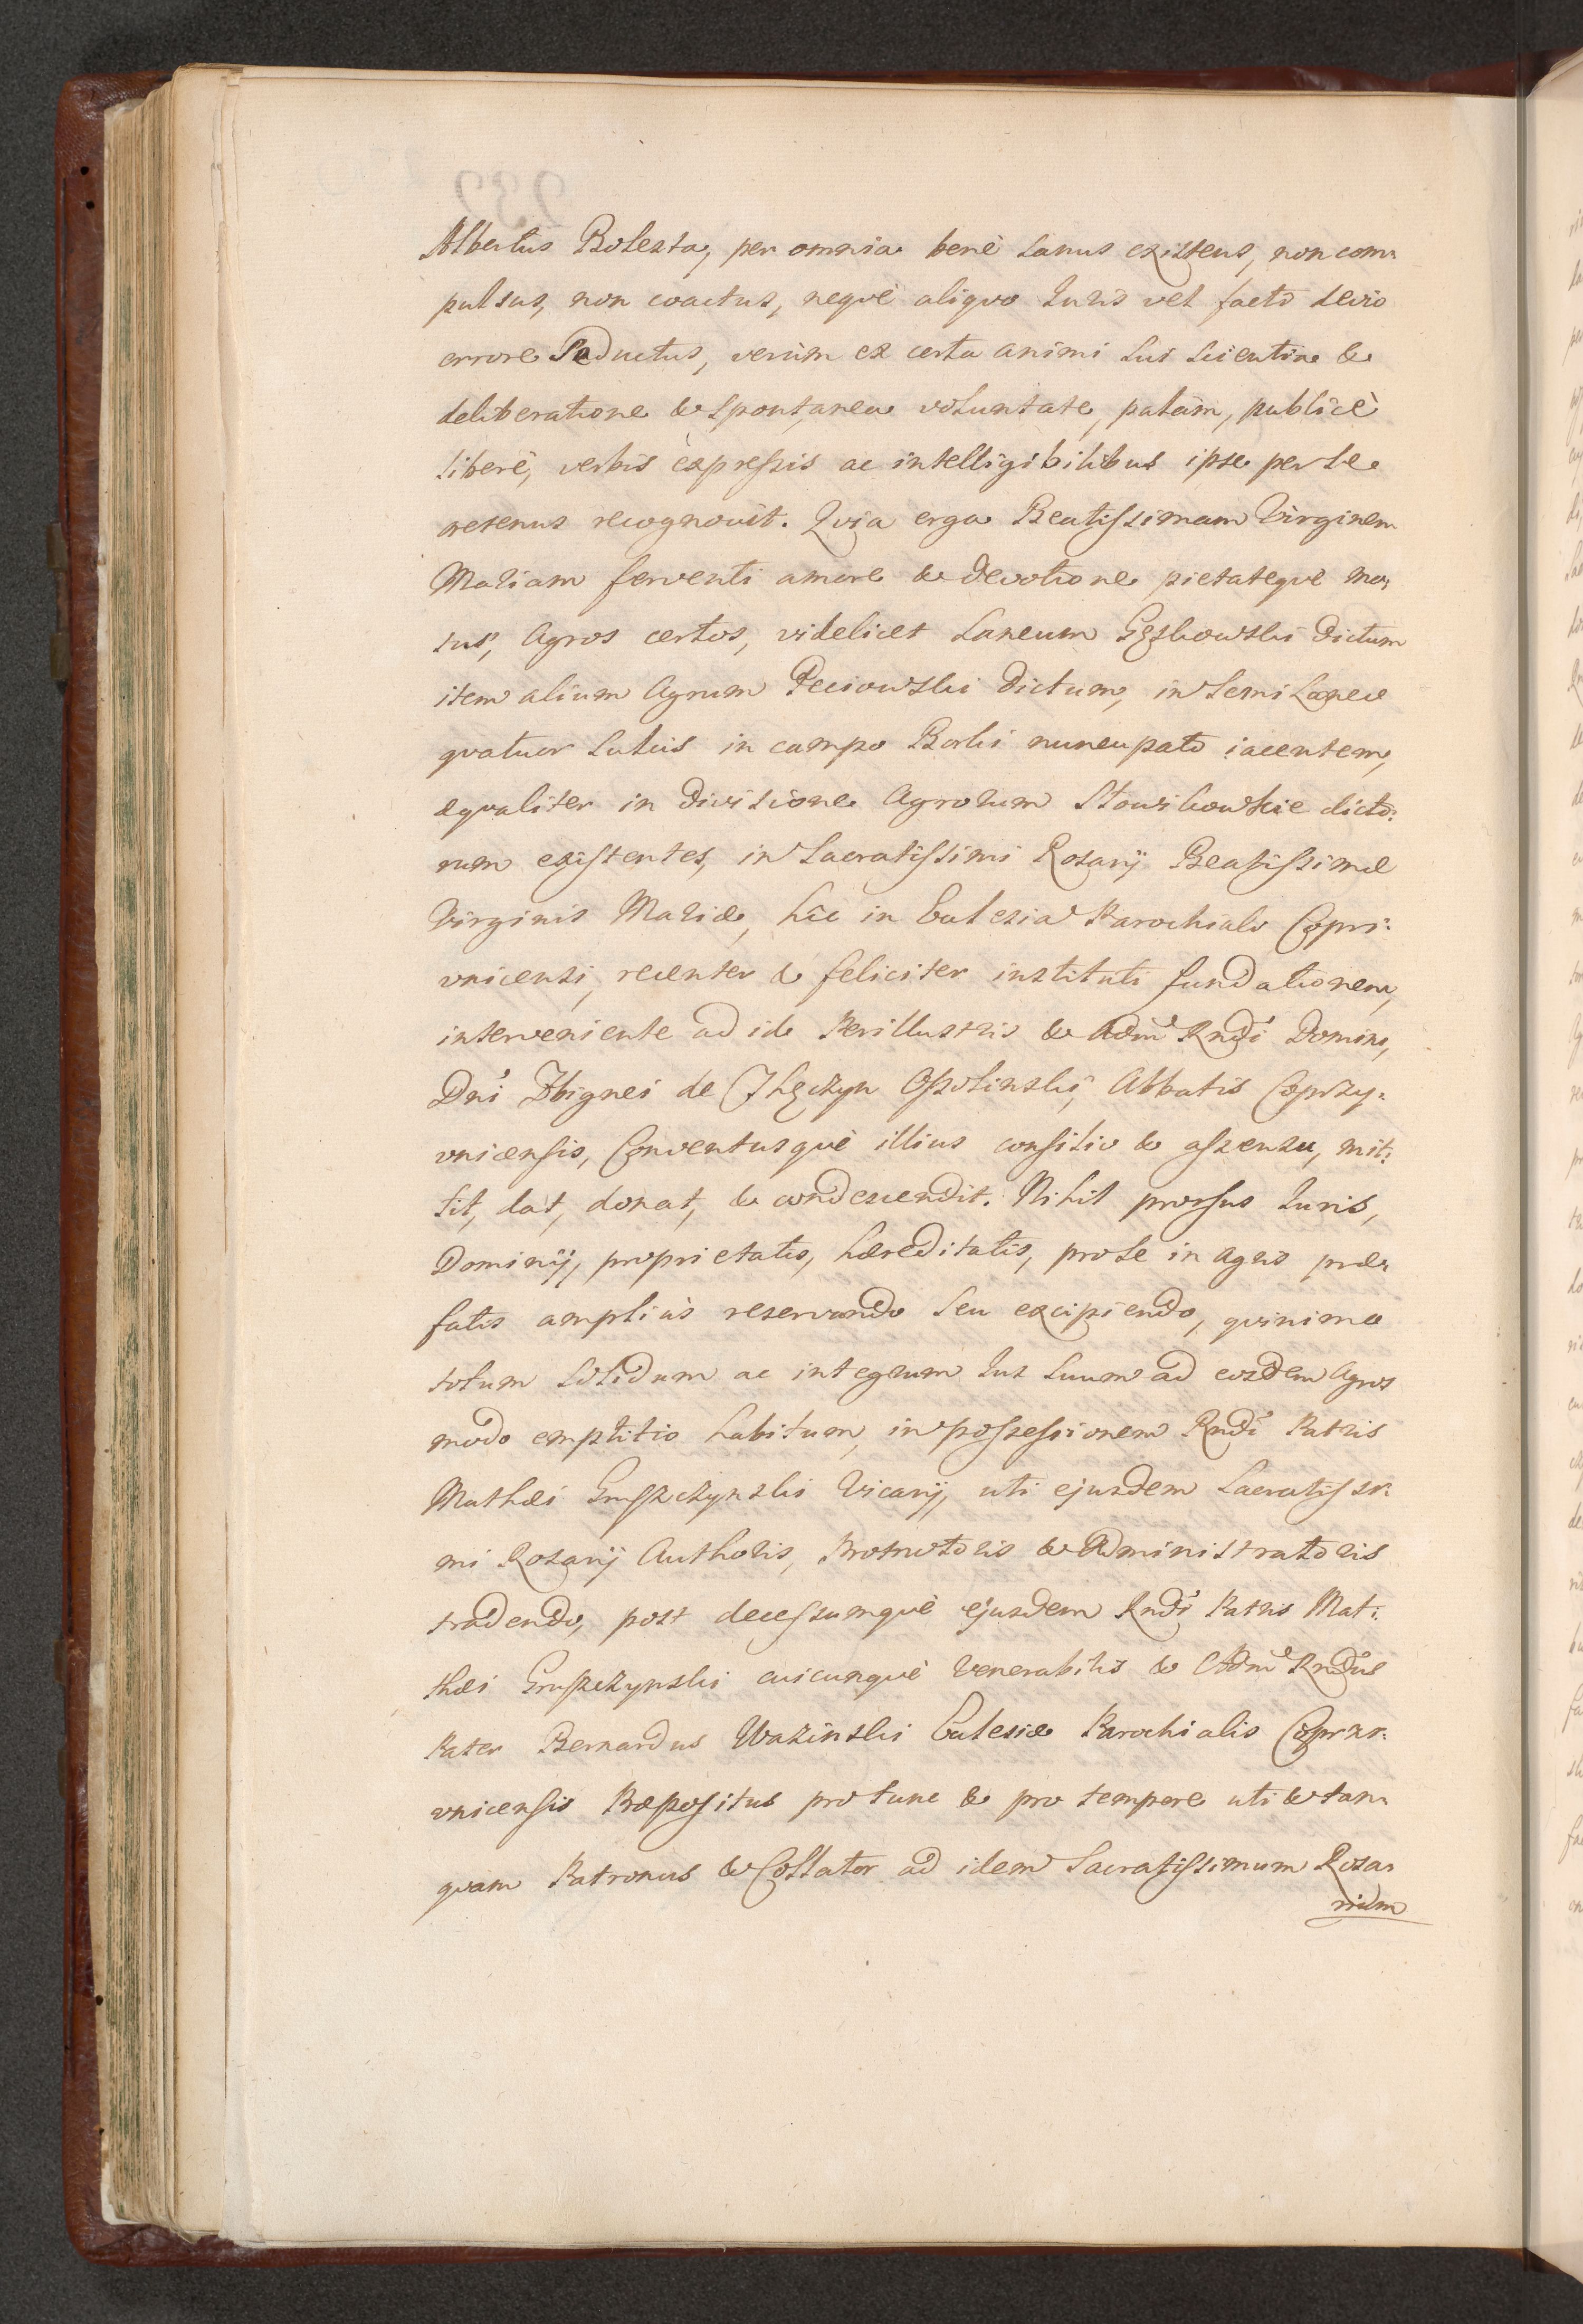 Albertus Bolesta, per omnia benè sanus existens, non com-
pulsus, non coactus, nequè aliquo Iuris vel facti devio
errore Seductus, verùm ex certa animi sui scientia &
deliberatione & spontanea voluntate, palàm, publicè
liberè, verbis expressis ac intelligibilibus ipse per se
oretenus recognovit. Quia erga Beatissimam Virginem
Mariam ferventi amore & devotione pietatequè mo-
tus, Agros certos, videlicet Laneum Gęskowski dictum
item alium Agrum Peciowski dictum, in Semi Laneo
quatuor Sulcis in campo Borki nuncupato iacentem,
equaliter in divisione Agrorum Słowikowskie dicto:
rum existentes, in Sacratissimi Rosarij Beatissimæ
Virginis Mariæ, hîc in Ecclesia Parochiali Copri:
vnicensi, recenter & feliciter instituti fundationem,
interveniente ad id Perillustris & Adm Rndi Domini,
Dni Zbignei de Thęczyn Ossolinski, Abbatis Coprzy:
vnicensis, Conventusquè illius consilio & assensu, mit:
tit, dat, donat, & condescendit. Nihil prorsus Iuris,
Dominij, proprietatis, hæreditatis, pro se in agris præ-
fatis ampliùs reservando seu excipiendo, quinimo
totum solidum ac integrum Ius suum ad eosdem Agros
modo emptitio habitum, in possessionem Rndi Patris
Mathæi Gruszczynski Vicarij, uti ejusdem Sacratissi-
mi Rosarij Authoris, Promotoris & Administratoris
tradendo, post decessumquè ejusdem Rndi Patris Mat:
thæi Gruszczynski cuicunquè Venerabilis & Adm Rndus
Pater Bernardus Wazinski Ecclesiæ Parochialis Coprzi-
vnicensis Præpositus pro tunc & pro tempore uti & tan-
quam Patronus & Collator ad idem Sacratissimum Rosa-
rium